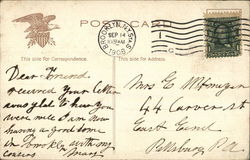 POST CARD
BROOKLYN, STA.
SEP 14
1908
This side for Correspondence.
This side for Address.
Dear Friend
received your letter
am glad to hear you
were well I am now
having a good time
in Brooklyn with my
cousins
Mrs E
44 Carver St
East End
Pittsburg, Pa